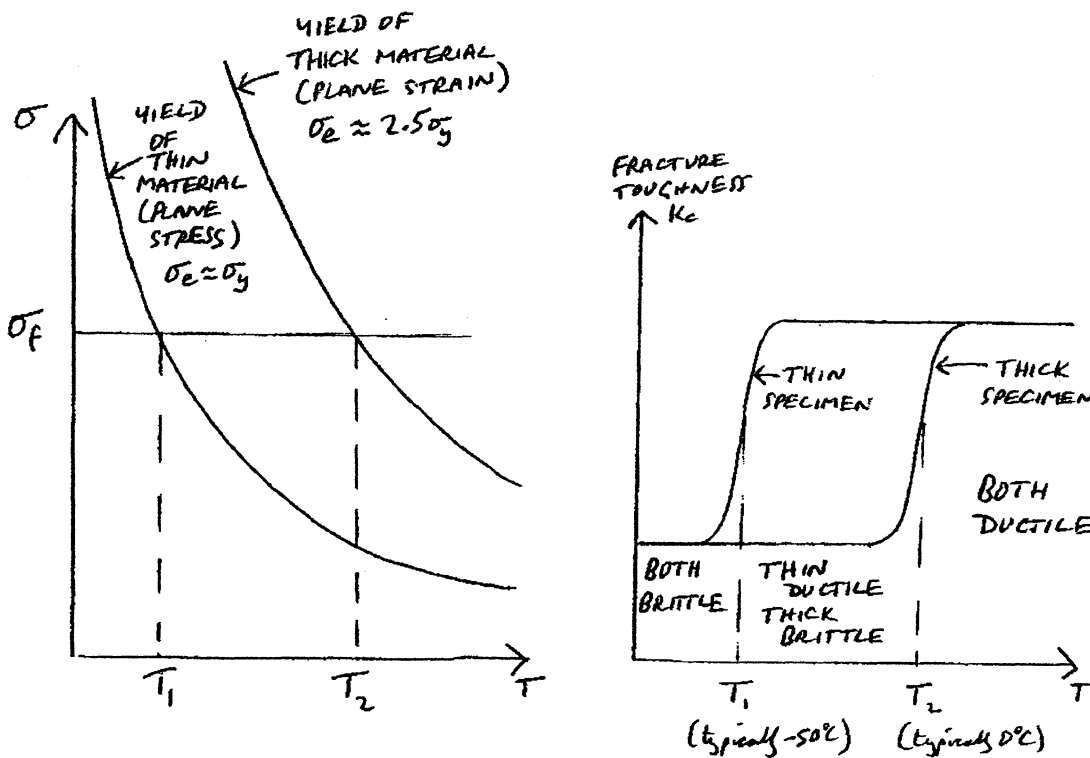 YIELD OF
THICK MATERIAL
(PLANE STRAIN)
σe ≈ 2.5σy
σ
YIELD
OF
THIN
MATERIAL
(PLANE
STRESS)
σe ≈ σy
σf
T1
T2
T
FRACTURE
TOUGHNESS
Kc
THIN
SPECIMEN
THICK
SPECIMEN
BOTH
DUCTILE
BOTH
BRITTLE
THIN
DUCTILE
THICK
BRITTLE
T1
T2
T
(typically -50°C)
(typically 0°C)